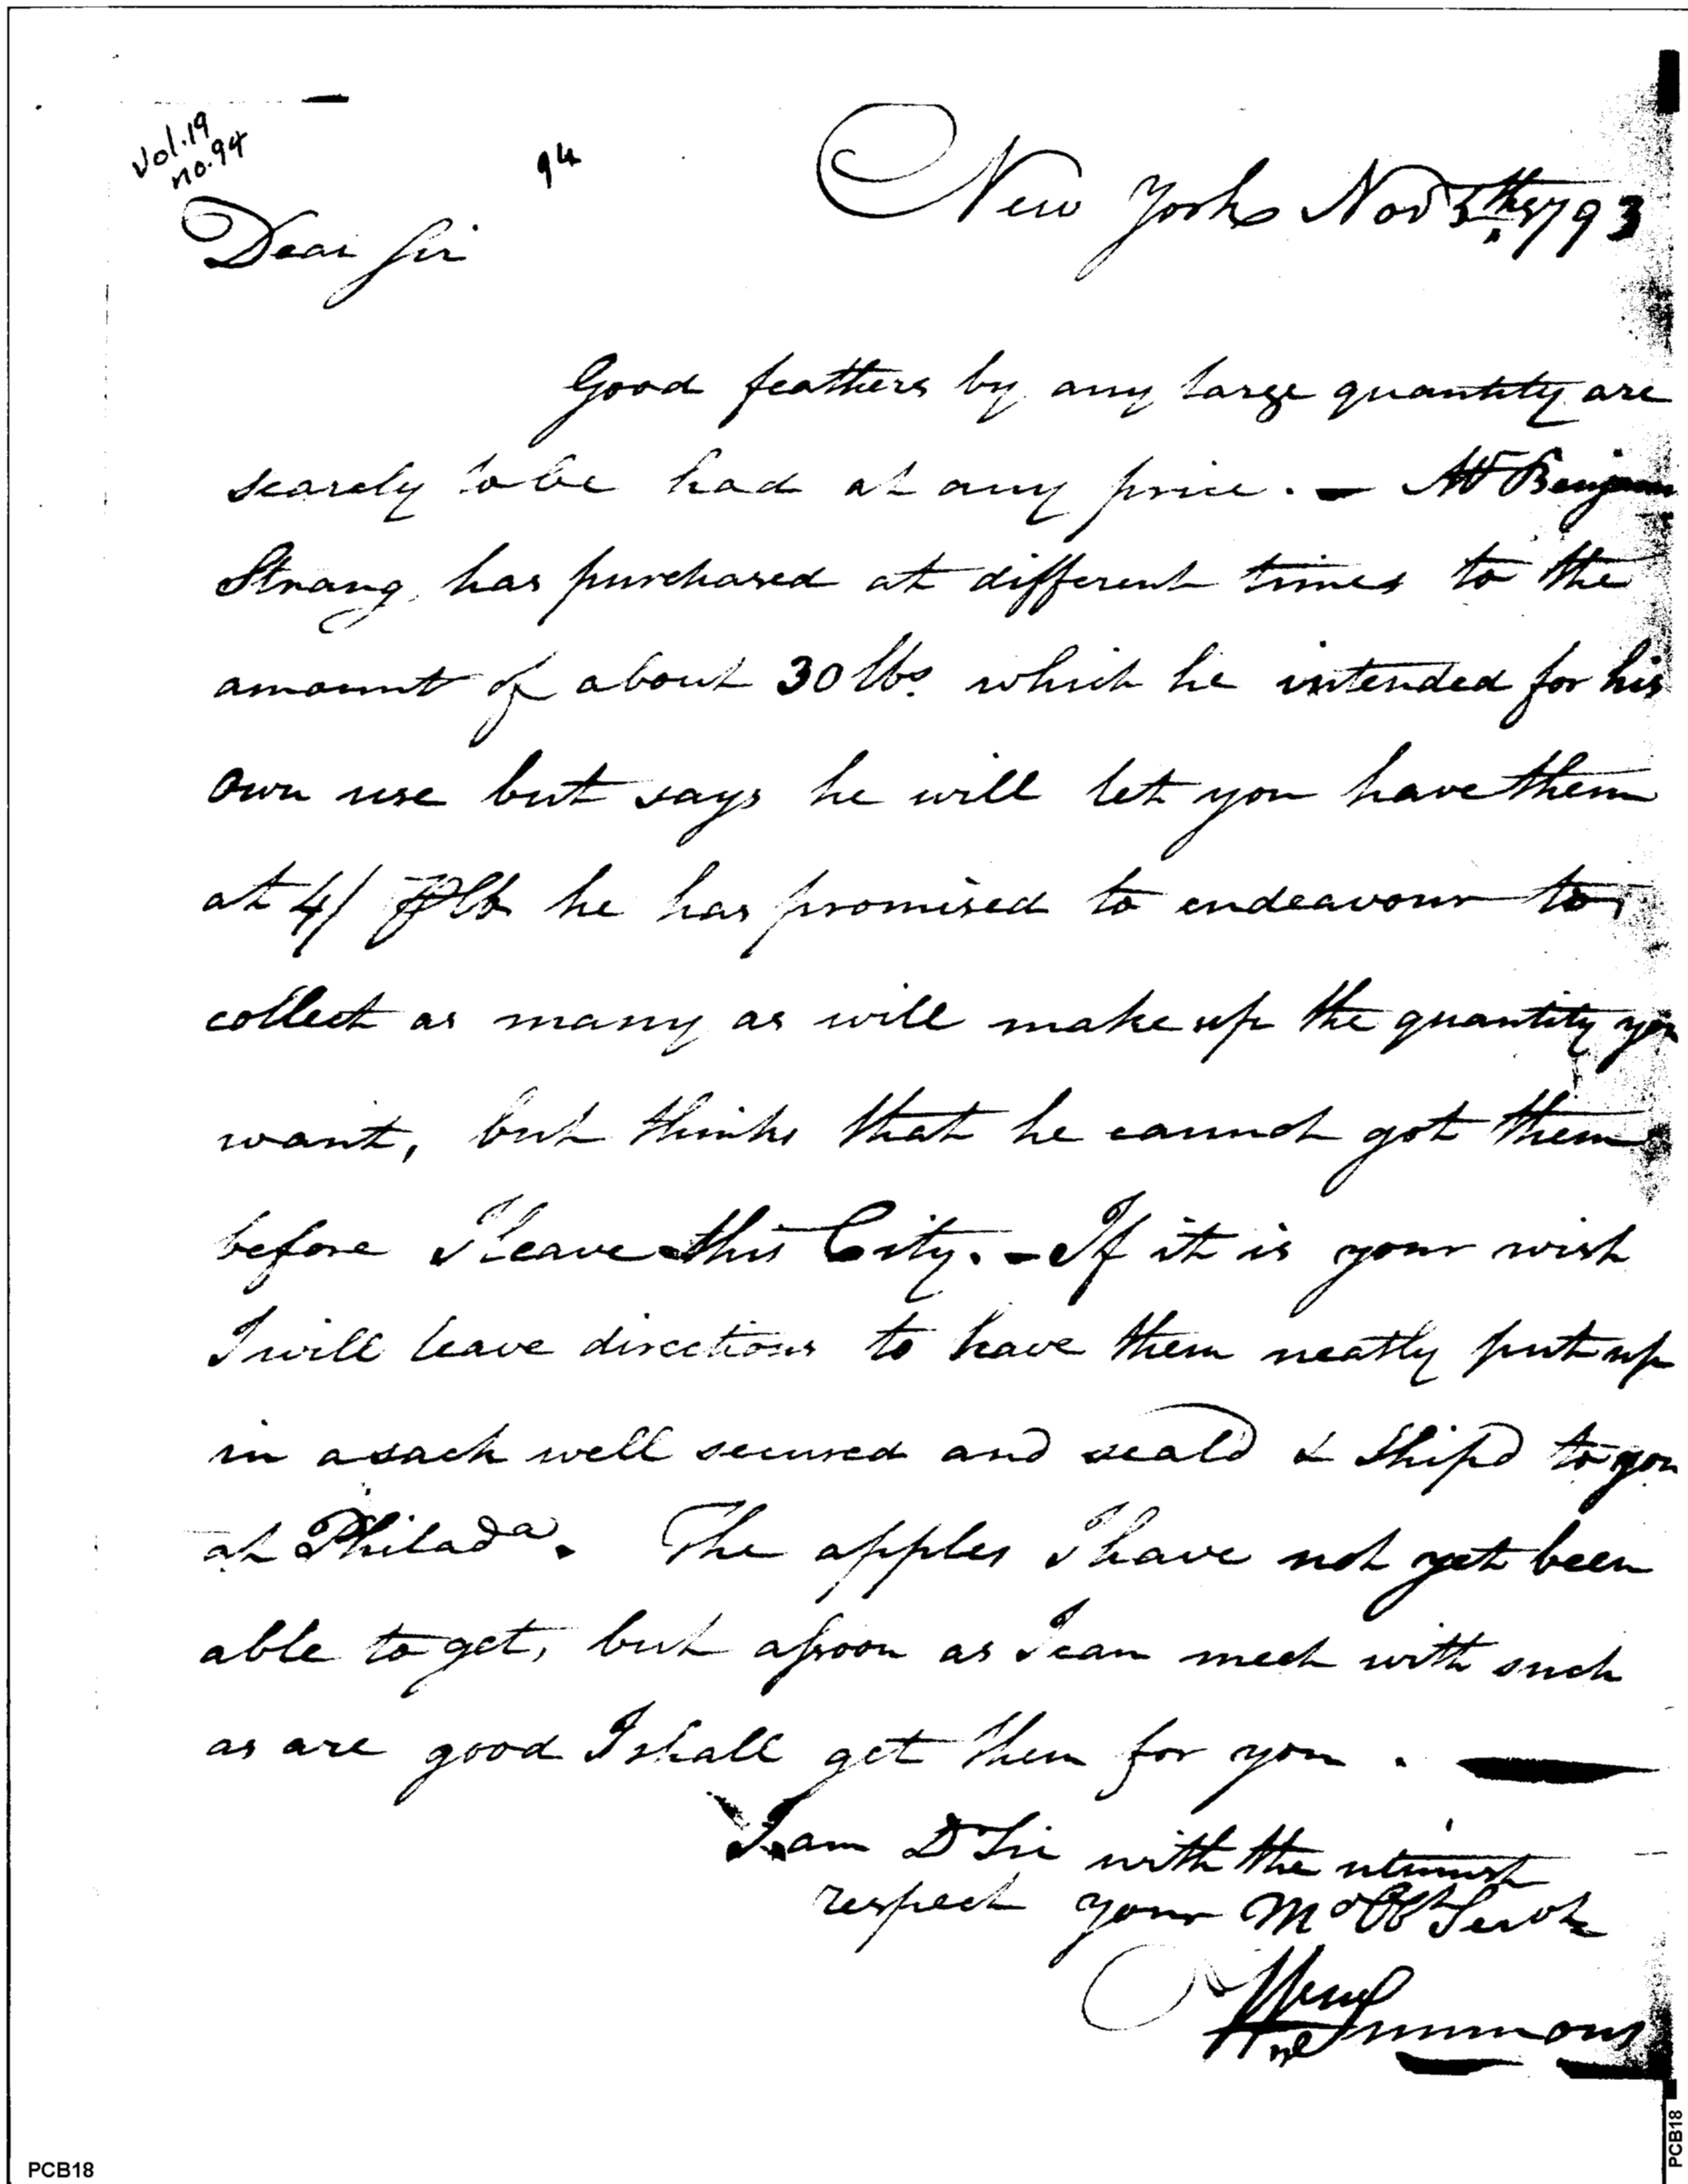 Vol. 19
no. 94
94
New York Nov 5th 1793
Dear Sir
Good feathers by any large quantity are
scarely to be had at any price. — Mr Benjamin
Strang has purchased at different times to the
amount of about 30 lbs. which he intended for his
own use but says he will let you have them
at 4/ ⅌ lb he has promised to endeavour to
collect as many as will make up the quantity you
want, but thinks that he cannot got them
before I leave this City. - If it is your wish
I will leave directions to have them neatly put up
in a sack well secured and seald & Shipd to you
at Philada. The apples I have not yet been
able to get, but assoon as I can meet with such
as are good I shall get them for you. —
I am Dr Sir with the utmost
respect your Mo Obt Servt
Simmons
PCB18
PCB18